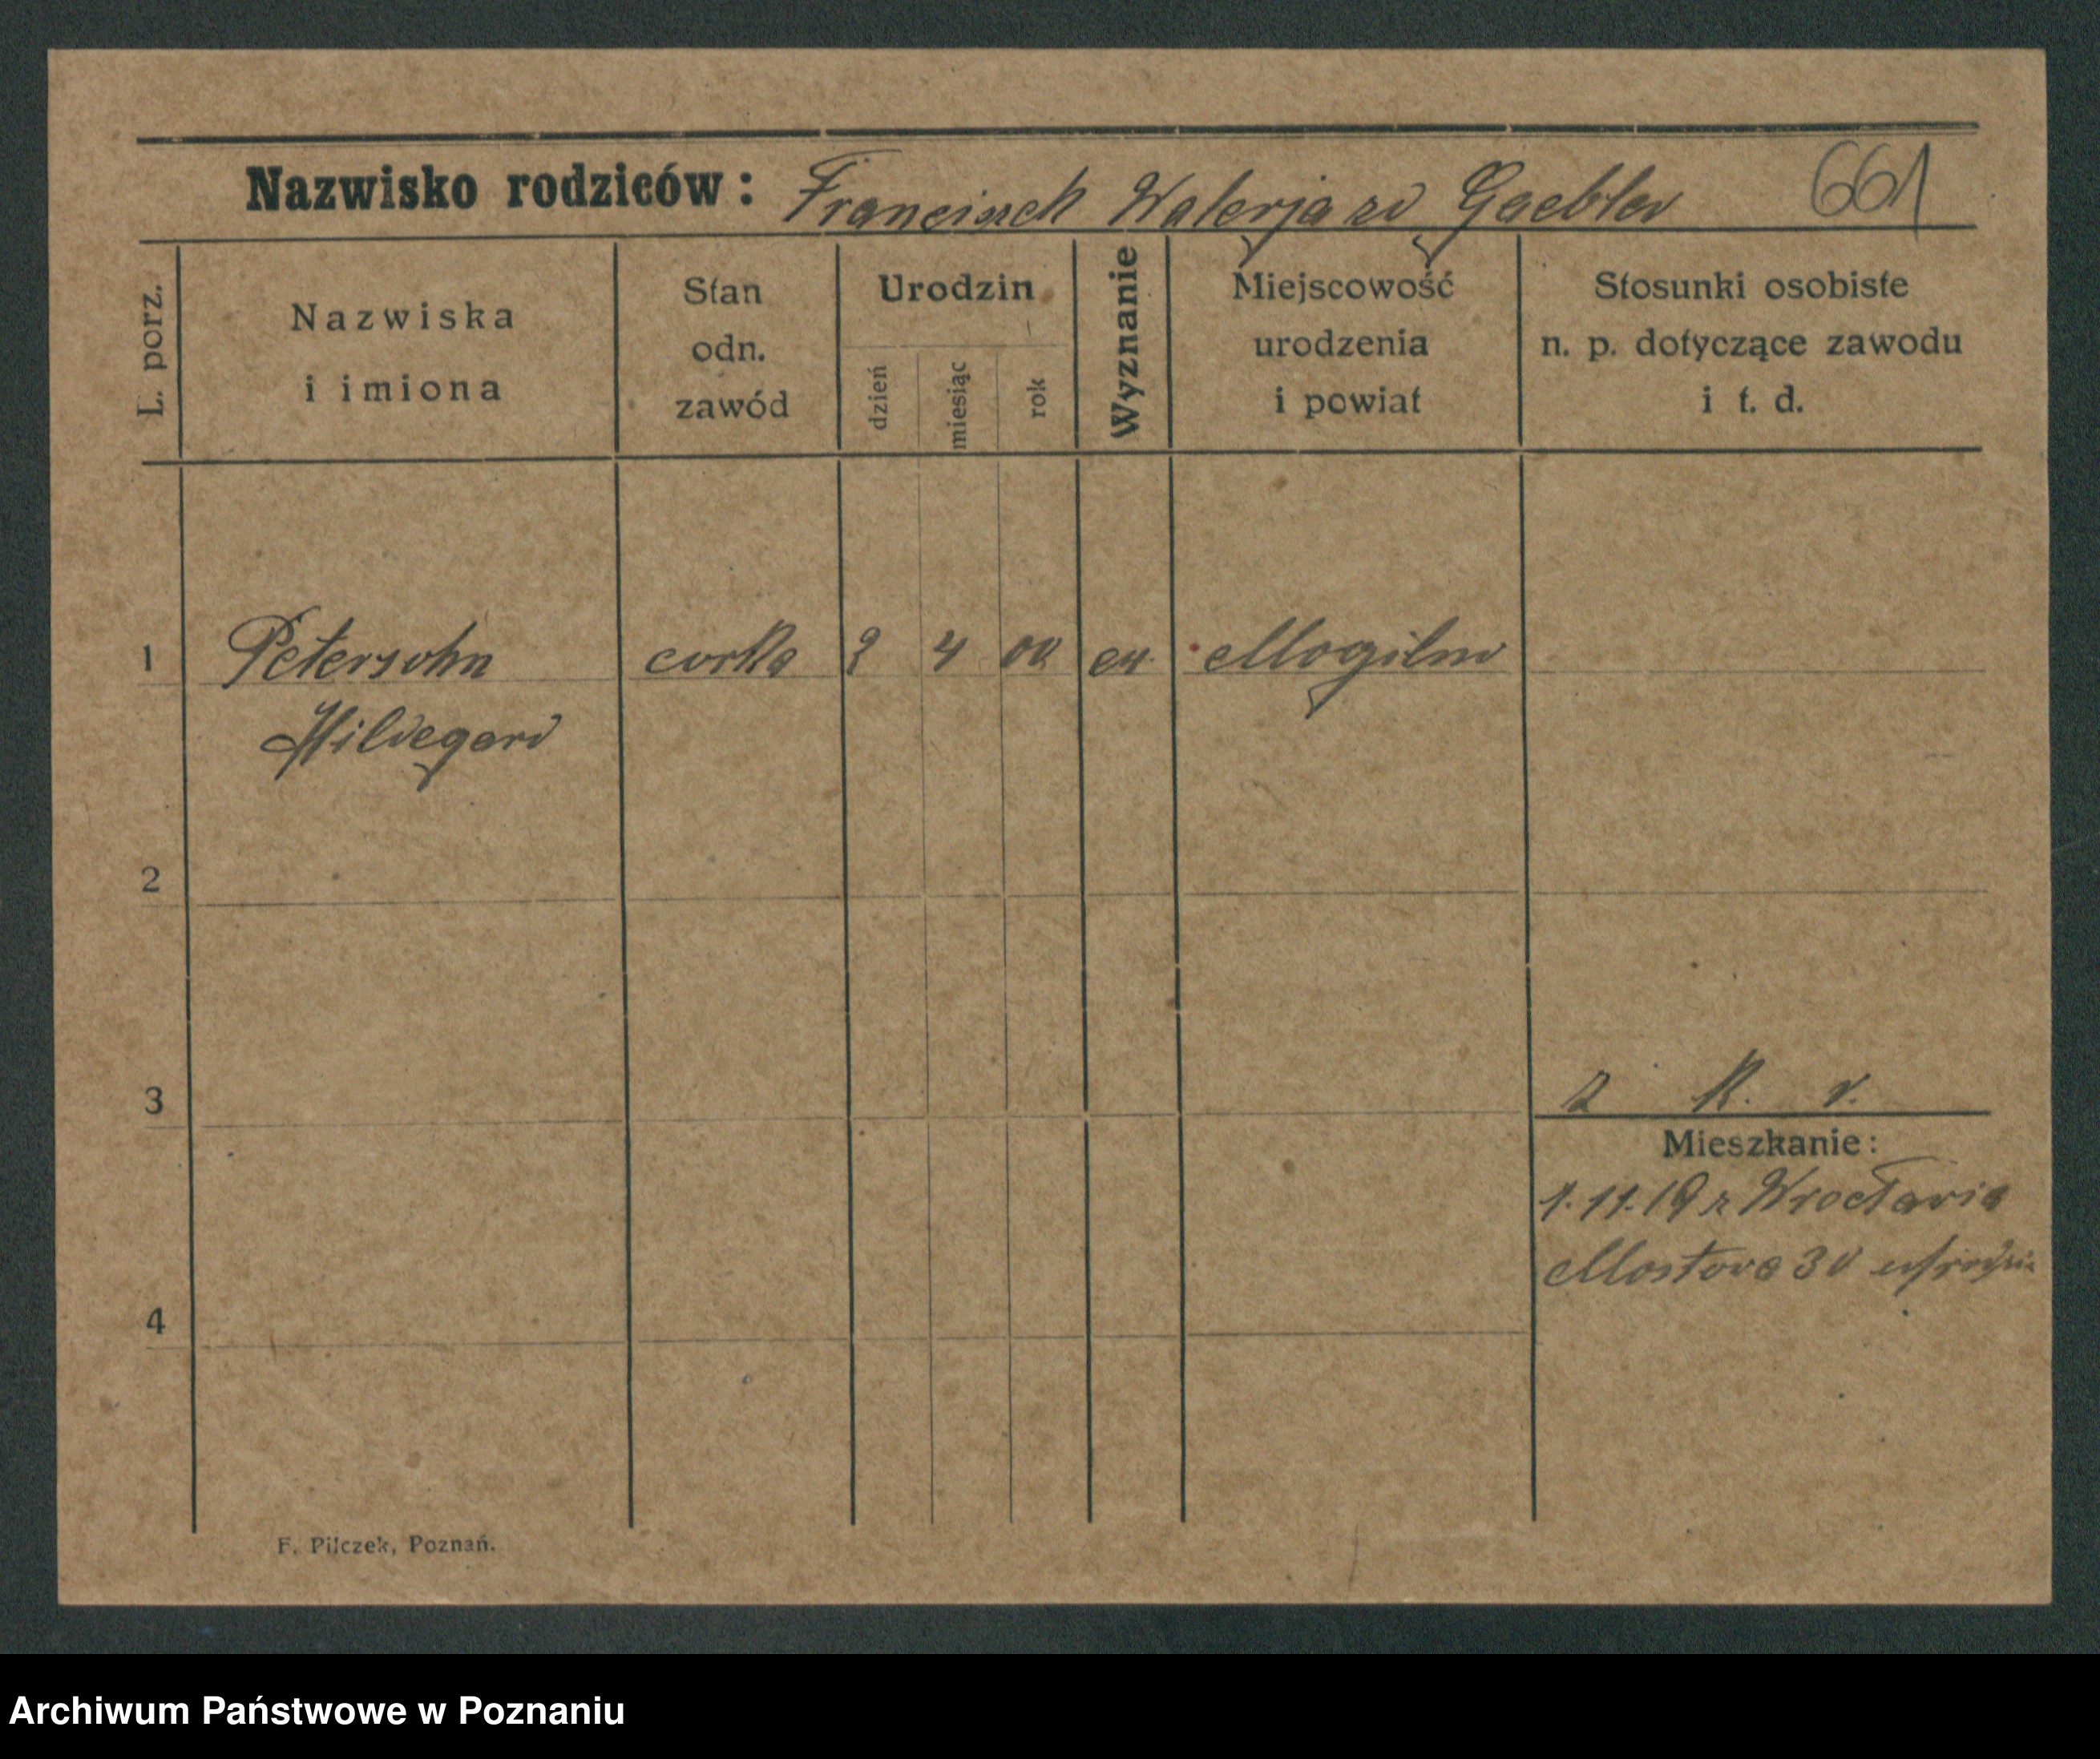 Nazwisko rodziców: Franciszek Walerja zd Gaebler 661
L. porz.
Nazwiska
i imiona
Stan
odn.
zawód
Urodzin
dzień
miesiąc
rok
Wyznanie
Miejscowość
urodzenia
i powiat
Stosunki osobiste
n. p. dotyczące zawodu
i t. d.
1 Petersohn corka 4 00 ew. Mogilno
Hildegard
2
3
R. v.
Mieszkanie:
1.11.19 z Wrocławia
Mostowa 30
4
F. Pilczek, Poznań.
Archiwum Państwowe w Poznaniu